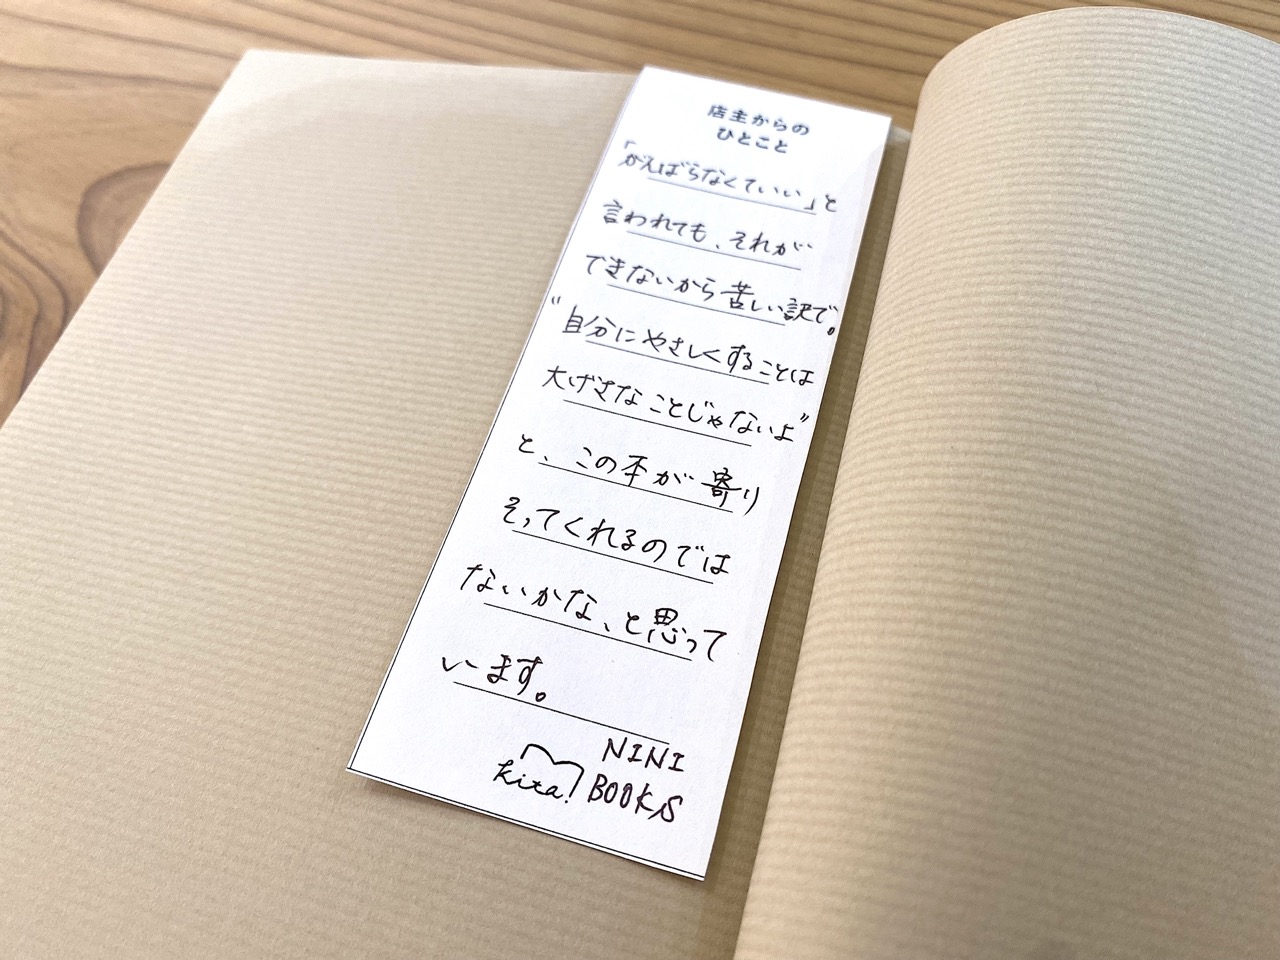 店主からの
ひとこと
「がんばらなくていい」と
言われても、それが
できないから苦しい訳で。
"自分にやさしくすることは
大げさなことじゃないよ"
と、この本が寄り
そってくれるのでは
ないかな、と思って
います。
NINI
kita! BOOKS